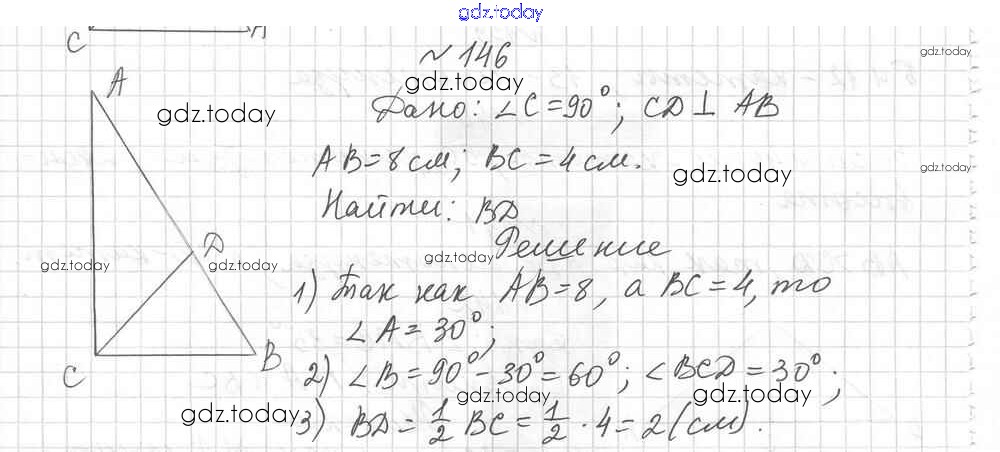 gdz.today
C A
№ 146
gdz.today
gdz.today
A
gdz.today
Дано: ∠C = 90°; CD ⊥ AB
AB = 8 см; BC = 4 см.
gdz.today
gdz.today
Найти: BD
Решение
D
gdz.today
gdz.today
gdz.today
gdz.today
1) Так как AB = 8, а BC = 4, то
∠A = 30°;
C B
2) ∠B = 90° - 30° = 60°; ∠BCD = 30°;
gdz.today
gdz.today
gdz.today
3) BD = 1/2 BC = 1/2 · 4 = 2 (см).